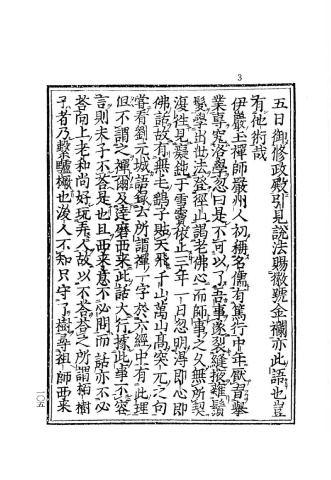 3
五日御修政殿引見説法賜徽號金襴亦此語也豈
有他術哉
伊巖玉禪師嚴州人初稱名儒有篤行中年厭習擧
業專究洛學忽曰是不可以了吾事遂裂縫掖雉鬚
髮學出世法登徑山謁老佛心而師事之久無所契
復往見癡絶于雪竇極止三年一日忽明得卽心卽
佛話故有無毛鷂子貼天飛千山萬山高突兀之句
嘗看劉元城語錄去所謂禪一字於六經中亦有此理
但不謂之禪爾及達磨西來此話大行據此事不容
言則夫子不答是也且西來意不必問而話亦不必
答向上老和尚好玩弄人故以不答答之所謂栢樹
子者乃繫驢橛也後人不知只守了樹尋祖師西來
一〇五